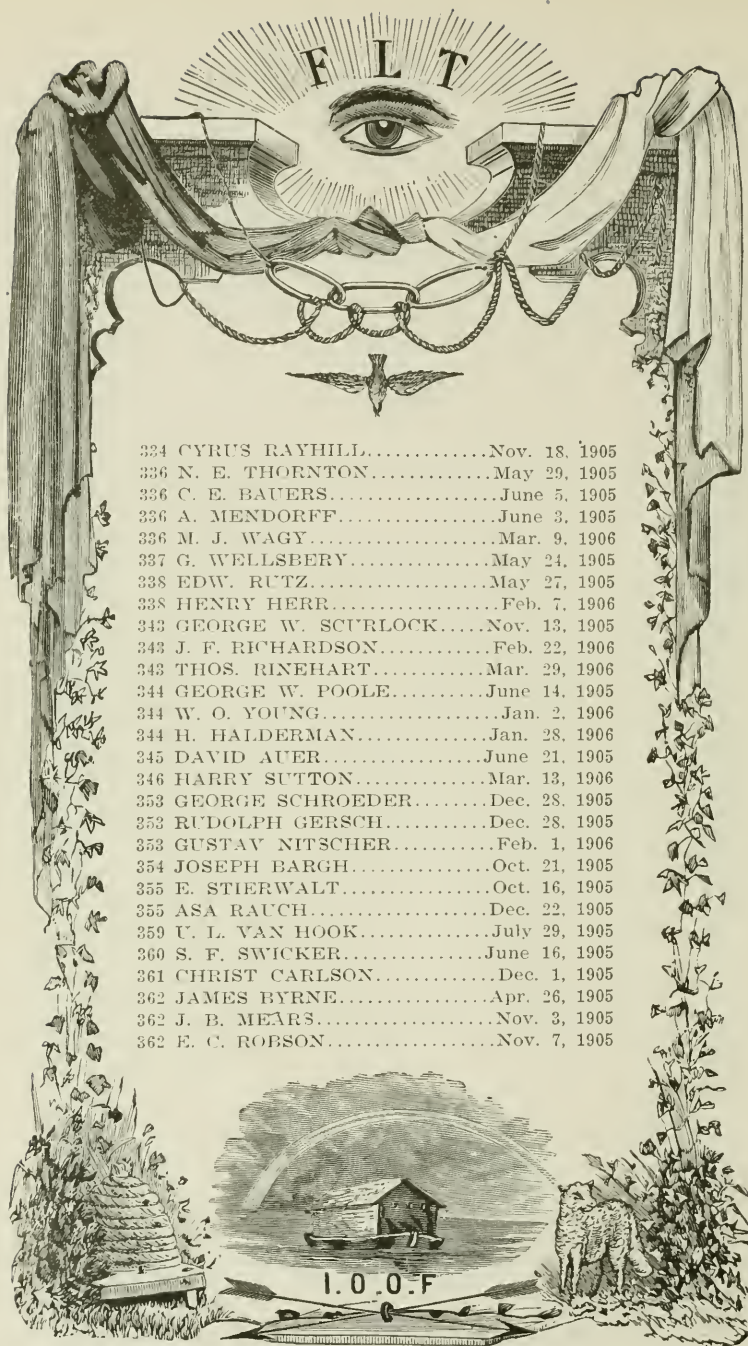 F L T
334 CYRUS RAYHILL.............Nov. 18, 1905
336 N. E. THORNTON............May 29, 1905
336 C. E. BAUERS................June 5, 1905
336 A. MENDORFF...............June 3, 1905
336 M. J. WAGY..................Mar. 9, 1906
337 G. WELLSBERY..............May 24, 1905
338 EDW. RUTZ..................May 27, 1905
338 HENRY HERR................Feb. 7, 1906
343 GEORGE W. SCURLOCK.....Nov. 13, 1905
343 J. F. RICHARDSON..........Feb. 22, 1906
343 THOS. RINEHART...........Mar. 29, 1906
344 GEORGE W. POOLE.........June 14, 1905
344 W. O. YOUNG.................Jan. 2, 1906
344 H. HALDERMAN.............Jan. 28, 1906
345 DAVID AUER................June 21, 1905
346 HARRY SUTTON.............Mar. 13, 1906
353 GEORGE SCHROEDER........Dec. 28, 1905
353 RUDOLPH GERSCH..........Dec. 28, 1905
353 GUSTAV NITSCHER..........Feb. 1, 1906
354 JOSEPH BARGH..............Oct. 21, 1905
355 E. STIERWALT..............Oct. 16, 1905
355 ASA RAUCH..................Dec. 22, 1905
359 U. L. VAN HOOK............July 29, 1905
360 S. F. SWICKER..............June 16, 1905
361 CHRIST CARLSON............Dec. 1, 1905
362 JAMES BYRNE...............Apr. 26, 1905
362 J. B. MEARS.................Nov. 3, 1905
362 E. C. ROBSON................Nov. 7, 1905
I.O.O.F